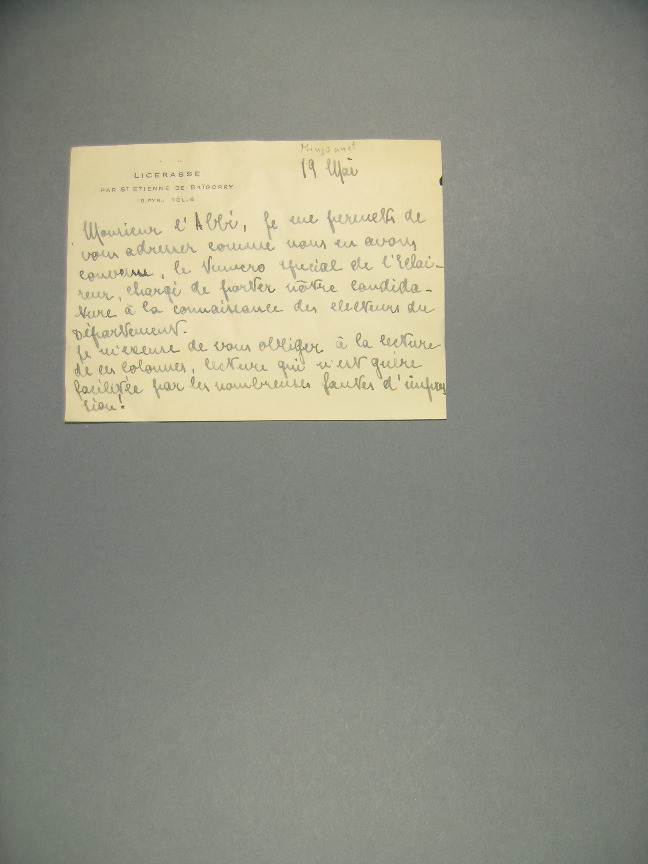 Minjonnet
19 Mai
LICERASSE
PAR ST ETIENNE DE BAÏGORRY
(B. PYR.) TÉL. 6
Monsieur l'Abbé, Je me permets de
vous adresser comme nous en avons
convenu, le Numero special de l'Eclai-
reur, chargé de porter nôtre candida-
ture à la connaissance des electeurs du
Département.
Je m'excuse de vous obliger à la lecture
de ces colonnes, lecture qui n'est guère
facilitée par les nombreuses fautes d'impres
sion!